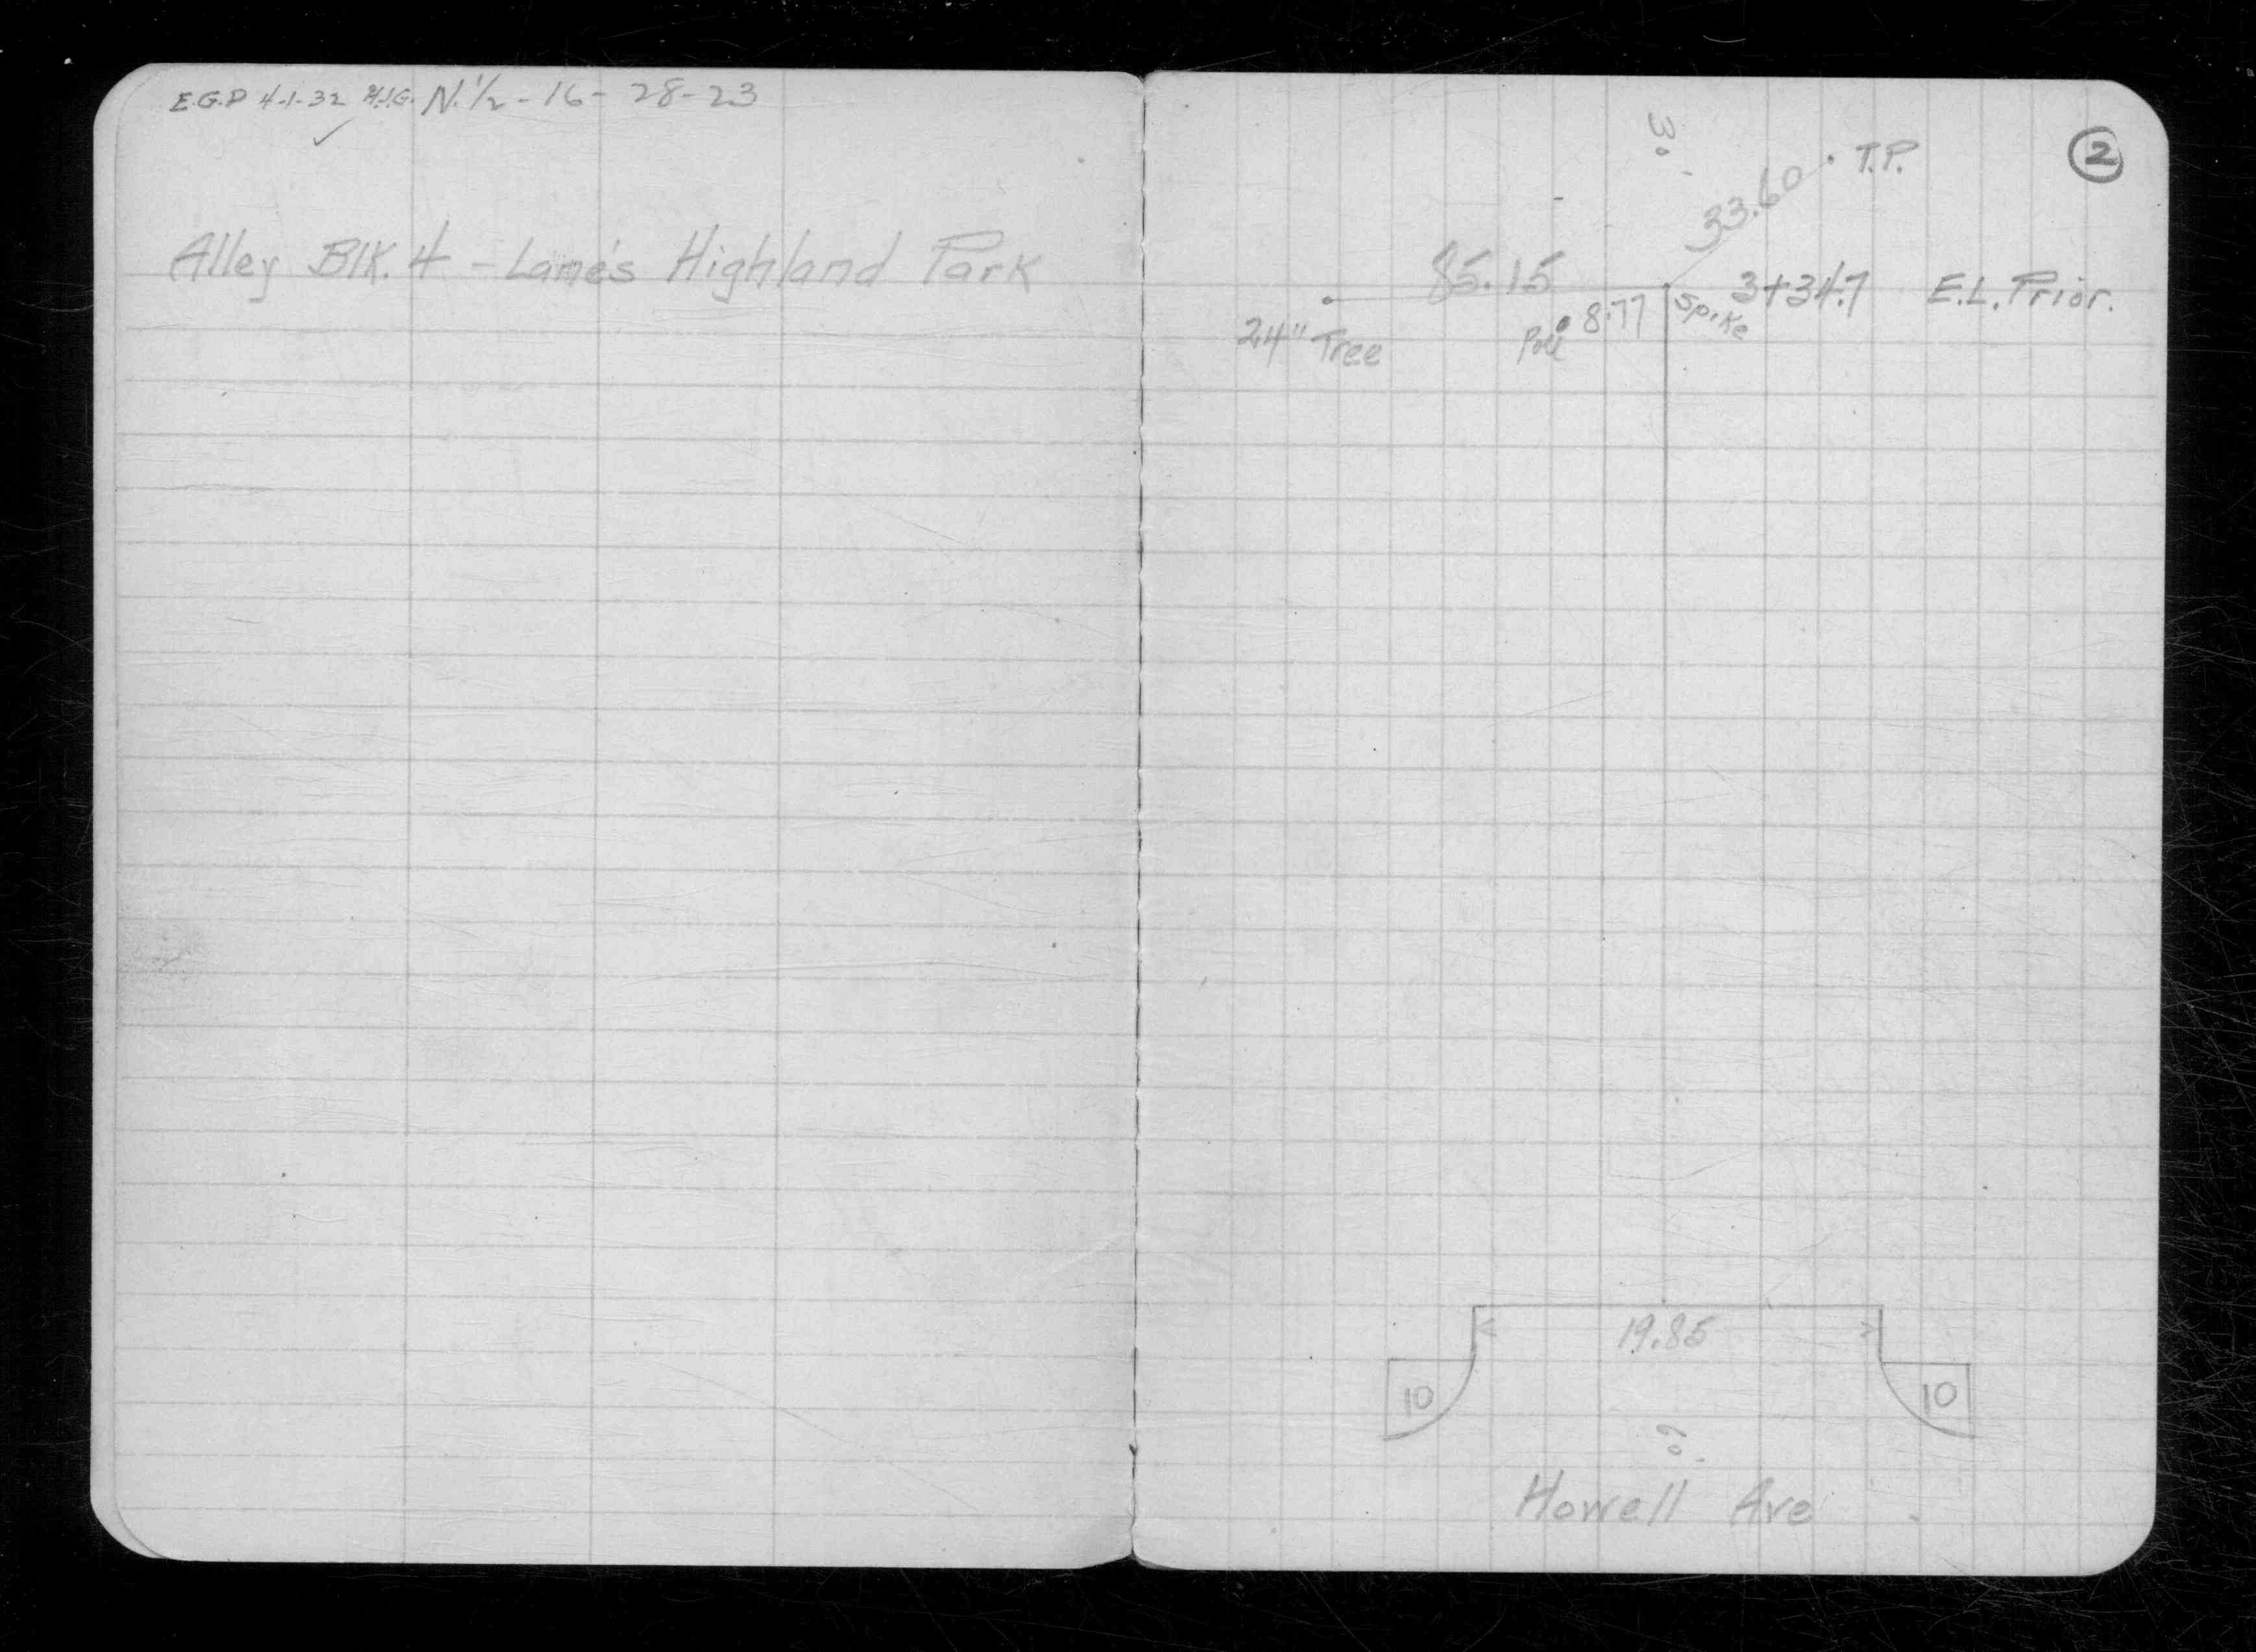 E.G.P 4-1-32 H.J.G. N.1/2 - 16 - 28-23
Alley Blk. 4 - Lane's Highland Park
2
3
T.P.
33.60
85.15
3+34.7 E.L. Prior.
Spike
8.77
Pole
24" Tree
19.85
10
10
Howell Ave